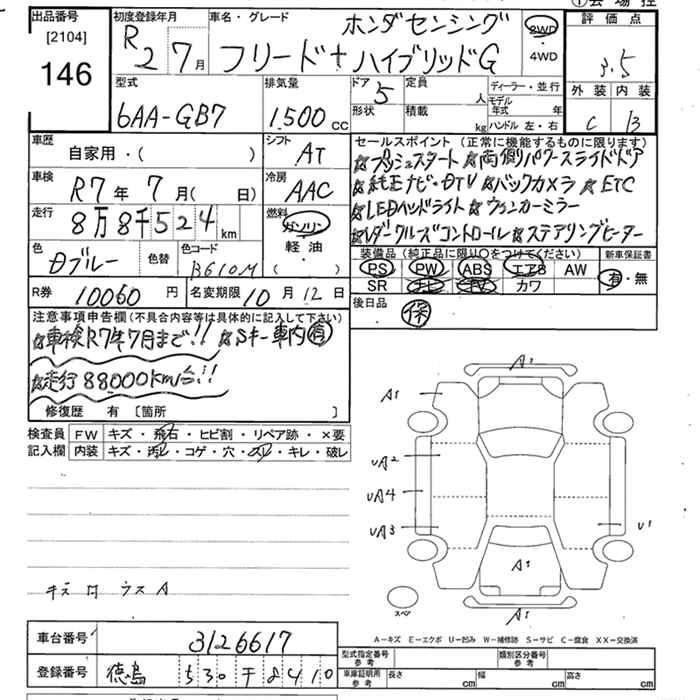 ① 会 場 控
出品番号 初度登録年月 車名・グレード ホンダセンシング 評 価 点
[2104] R 2 7月 フリード+ ハイブリッドG 2WD ・4WD 3.5
146
型式 排気量 ドア 5 定員 人 ディーラー・並行 外 装 内 装
6AA-GB7 1,500 CC 形状 積載 kg モデル年式 年 C B
ハンドル 左・右
車歴 シフト セールスポイント (正常に機能するものに限ります)
自家用・( ) AT ☆プッシュスタート ☆両側パワースライドドア
車検 冷房 ☆純正ナビ・DTV ☆バックカメラ ☆ETC
R7年 7月( 日) AAC ☆LEDヘッドライト ☆ウィンカーミラー
走行 8万8千524km 燃料 ガソリン ☆レーダークルーズコントロール ☆ステアリングヒーター
色 色替 色コード 軽油・ 装備品 (純正品に限り○をつけてください) 新車保証書
Dブルー B610M ( ) PS PW ABS エアB AW 有・無
SR ナビ TV カワ
R券 10060円 名変期限 10月12日 後日品 保
注意事項申告欄(不具合内容等は具体的に記入して下さい)
☆車検R7年7月まで!! ☆Sキー車内有
☆走行88000km台!!
修復歴 有 〔箇所 〕
検査員 FW キズ・飛石・ヒビ割・リペア跡・×要
記入欄 内装 キズ・汚れ・コゲ・穴・スレ・キレ・破レ
A1
A1
UA2
UA4
UA3 U1
A1
キズ ウスA
スペア A1
A-キズ E-エクボ U-凹み W-補修跡 S-サビ C-腐食 XX-交換済
車台番号 3126617 型式指定番号 参考 類別区分番号 参考
登録番号 徳島 530 千 8410 車庫証明用 参考 長さ cm 幅 cm 高さ cm